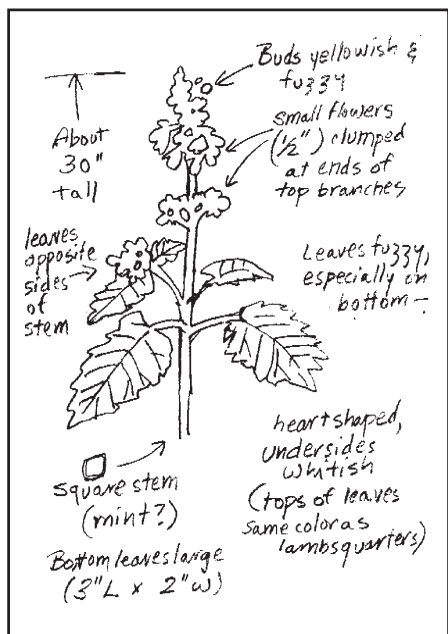 Buds yellowish &
fuzzy
About
30"
tall
small flowers
(1/2") clumped
at ends of
top branches
leaves
opposite
sides
of
stem
Leaves fuzzy,
especially on
bottom –
heart shaped,
undersides
whitish
(tops of leaves
same color as
lambsquarters)
square stem
(mint?)
Bottom leaves large
(3" L x 2" W)